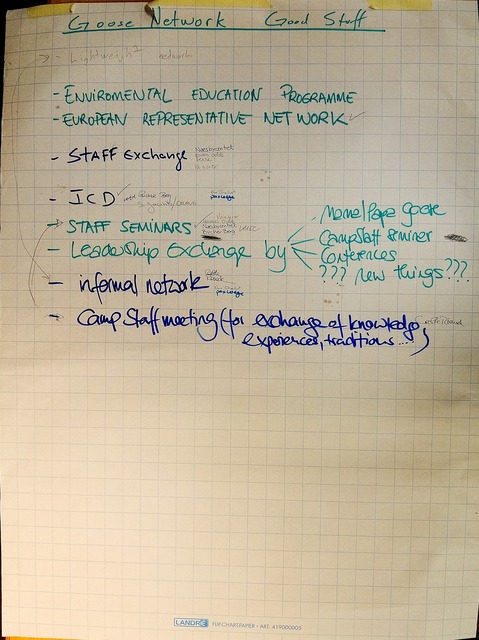 Goose Network Good Stuff
- Lightweight network
- ENVIROMENTAL EDUCATION PROGRAMME
- EUROPEAN REPRESENTATIVE NETWORK
- STAFF Exchange
- ICD
- STAFF SEMINARS
- Leadership Exchange by
Goose
CampStaff Seminer
Conferences
??? new things???
- informal network
- Camp Staff meeting (for exchange of knowledge
experiences, traditions...)
LANDRÉ FLIP-CHART-PAPIER • ART. 419000005